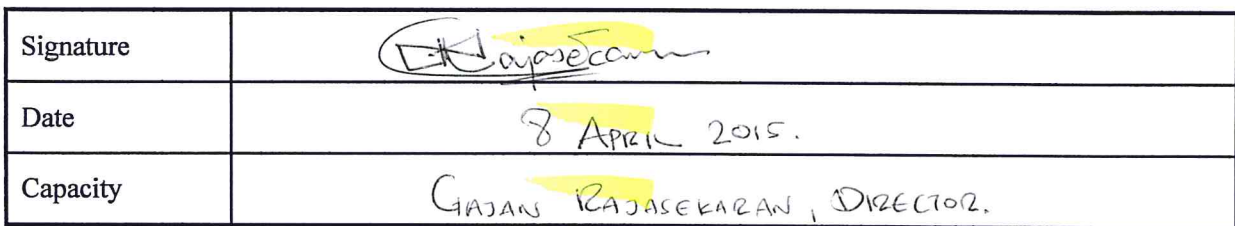 Signature
Date 8 APRIL 2015.
Capacity GAJAN RAJASEKARAN, DIRECTOR.